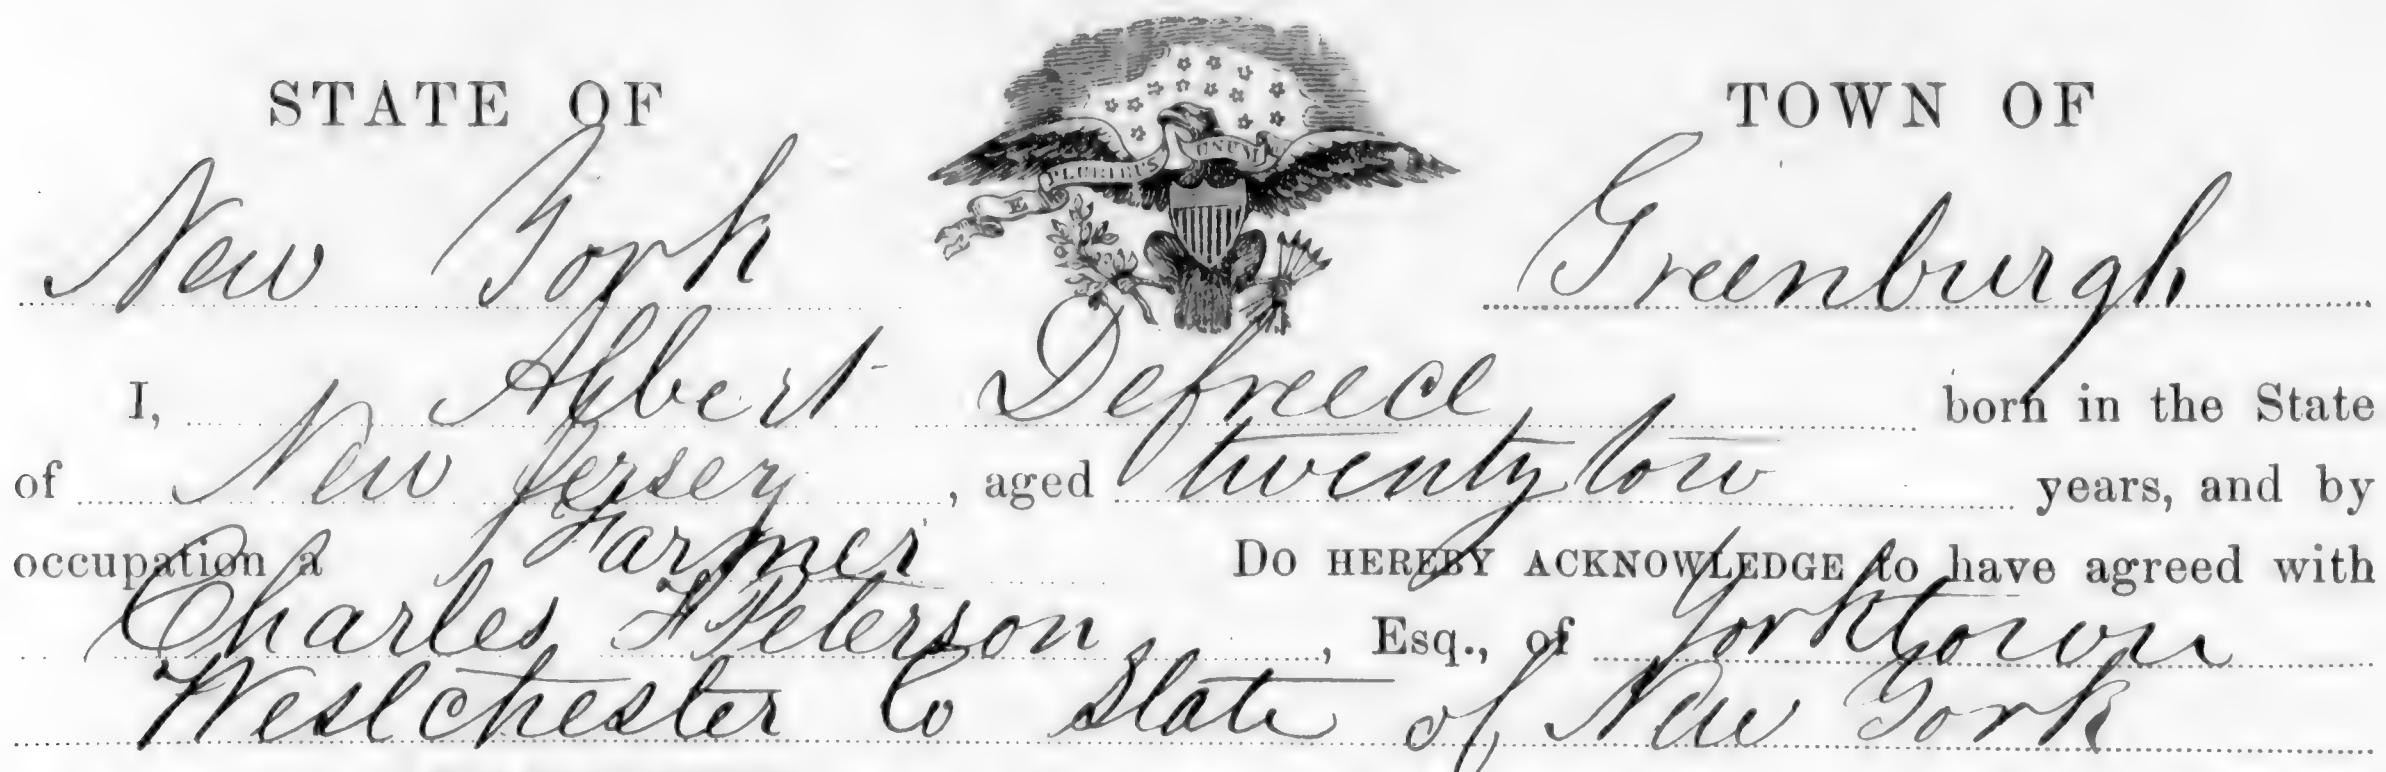 STATE OF
TOWN OF
E PLURIBUS UNUM
New York
Greenburgh
I, Albert Defreece born in the State
of New Jersey, aged twenty two years, and by
occupation a Farmer Do HEREBY ACKNOWLEDGE to have agreed with
Charles F Peterson, Esq., of Yorktown
Westchester Co State of New York